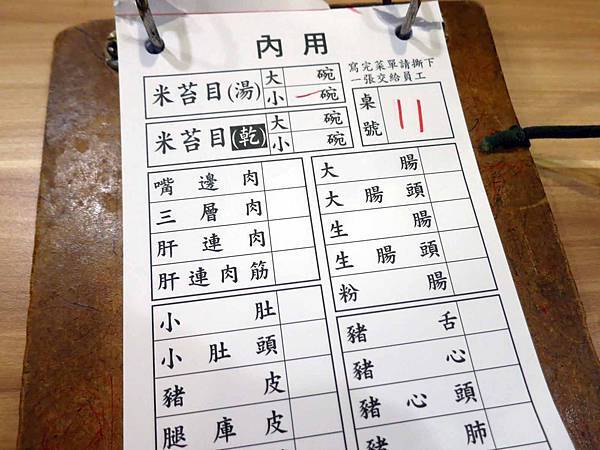 內用
寫完菜單請撕下
一張交給員工
米苔目(湯) 大 碗
小 一碗
桌號 11
米苔目(乾) 大 碗
小 碗
嘴邊肉
三層肉
肝連肉
肝連肉筋
大腸
大腸頭
生腸
生腸頭
粉腸
小肚
小肚頭
豬皮
腿庫皮
豬舌
豬心
豬心頭
豬肺